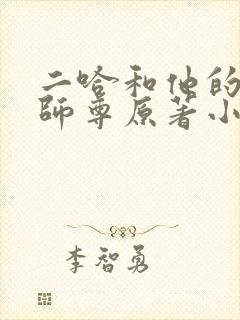 二哈和他的
師尊原著小
李智勇